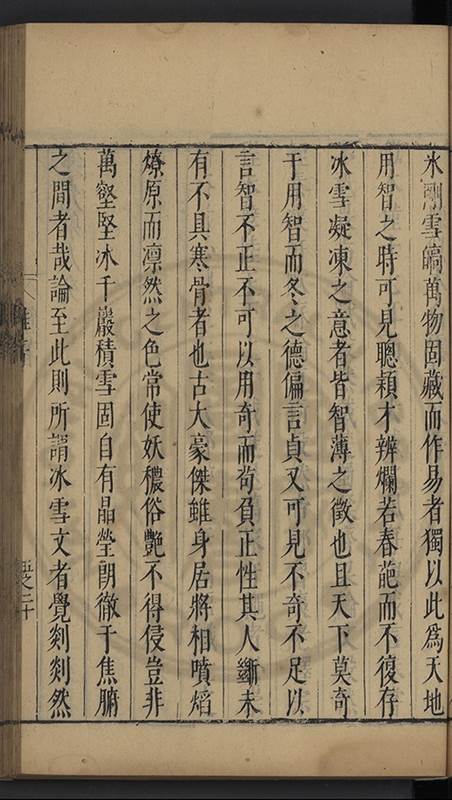 氷剛雪皜萬物固藏而作易者獨以此為天地
用智之時可見聰穎才辨爛若春葩而不復存
冰雪凝凍之意者皆智薄之徵也且天下莫奇
于用智而冬之德偏言貞又可見不奇不足以
言智不正不可以用奇而苟負正性其人斷未
有不具寒骨者也古大豪傑雖身居將相噴熖
燎原而凛然之色常使妖穠俗艷不得侵豈非
萬壑堅冰千巖積雪固自有晶瑩朗徹于焦腑
之間者哉論至此則所謂冰雪文者覺剡剡然
五之二十